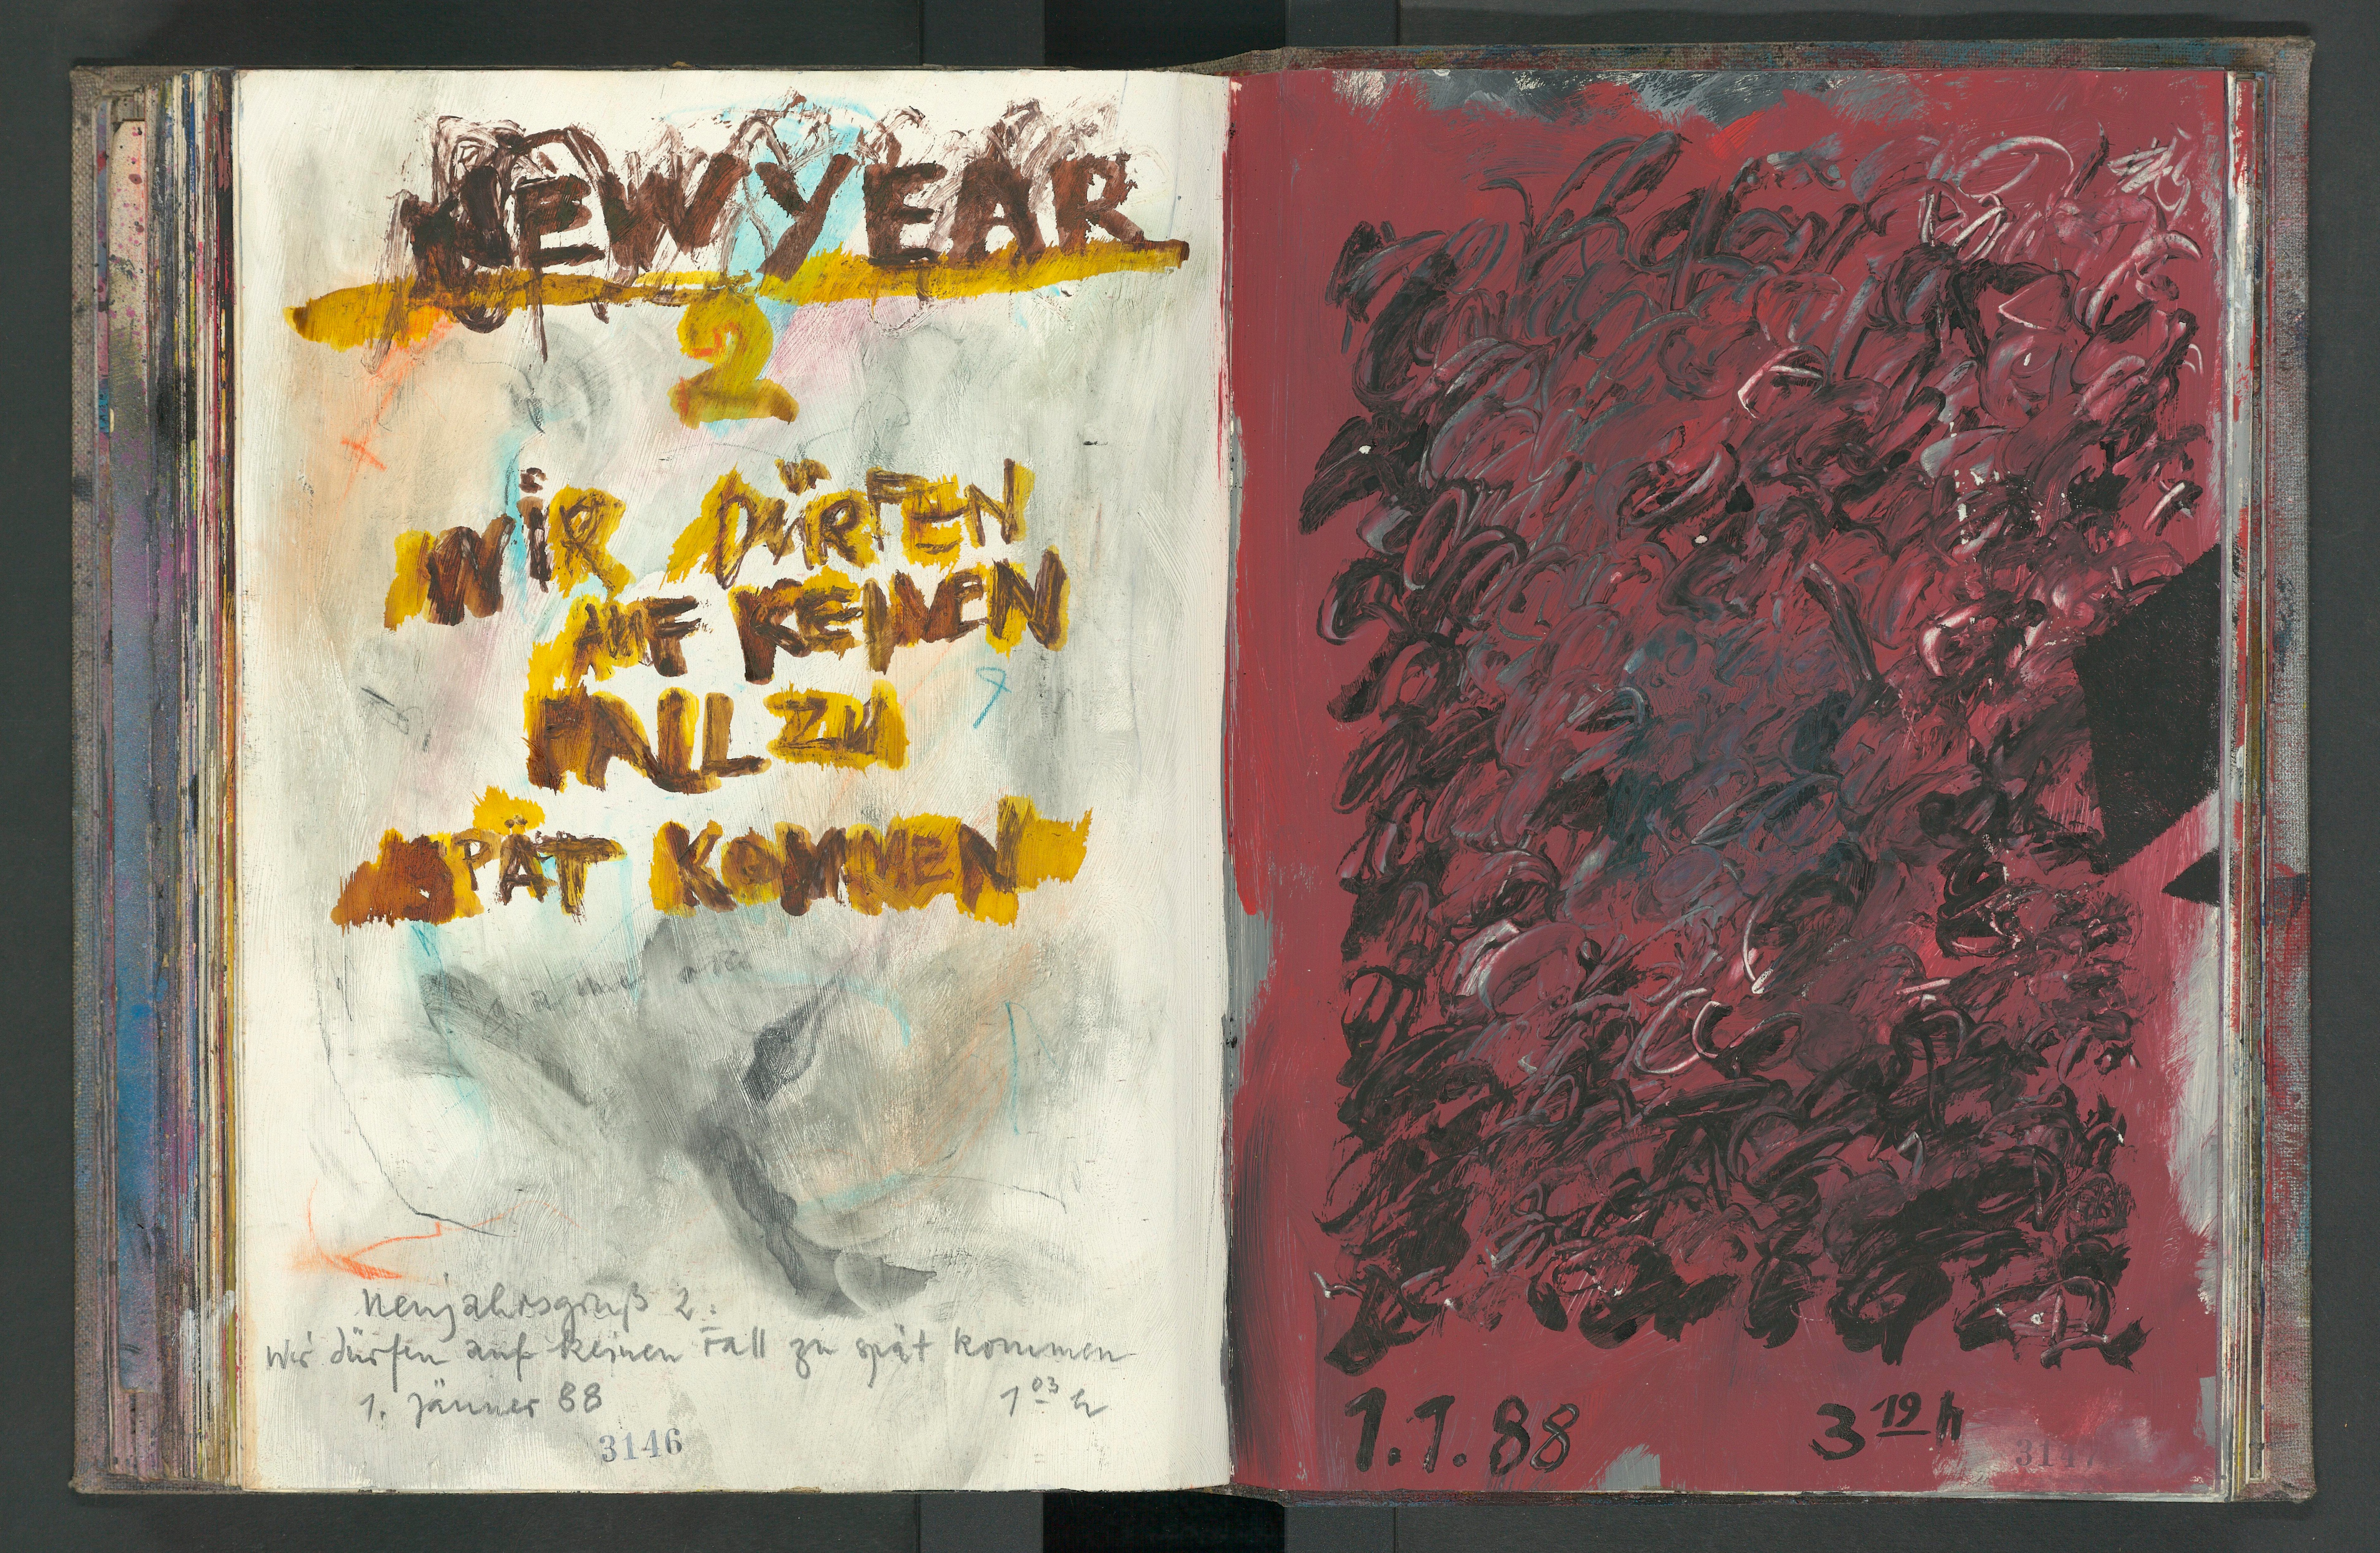 NEW YEAR
2
WiR DÜRFEN
AUF KEINEN
FALL ZU
SPÄT KOMMEN
Neujahrsgruß 2:
Wir dürfen auf keinen Fall zu spät kommen
1. Jänner 88 1 03 h
3146
1.1.88 3 19 h
3147